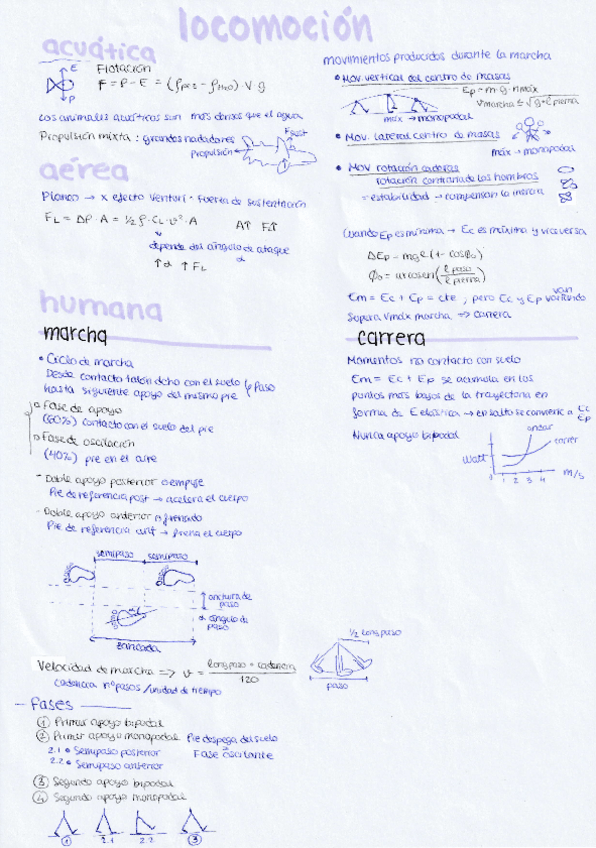 locomoción
acuática
E
P
Flotación
F = P - E = (ρpez - ρH2O) V g
Los animales acuáticos son más densos que el agua
Propulsión mixta: grandes nadadores
Propulsión
Fsust
aérea
Planeo → x efecto Venturi · fuerza de sustentación
FL = ΔP · A = 1/2 ρ · CL · v² · A
A↑ F↑
depende del ángulo de ataque
α
↑α ↑FL
humana
marcha
• Ciclo de marcha
Desde contacto talón dcho con el suelo
hasta siguiente apoyo del mismo pie
Paso
Fase de apoyo
(60%) contacto con el suelo del pie
Fase de oscilación
(40%) pie en el aire
- Doble apoyo posterior o empuje
Pie de referencia post → acelera el cuerpo
- Doble apoyo anterior o frenado
Pie de referencia ant → frena el cuerpo
semipaso semipaso
anchura de paso
α ángulo de paso
zancada
Velocidad de marcha => v = long paso · cadencia / 120
cadencia nº pasos / unidad de tiempo
- Fases
① Primer apoyo bipodal
② Primer apoyo monopodal Pie despega del suelo
2.1 • Semipaso posterior Fase oscilante
2.2 • Semipaso anterior
③ Segundo apoyo bipodal
④ Segundo apoyo monopodal
① 2.1 2.2 ③
movimientos producidos durante la marcha
• Mov. vertical del centro de masas
Ep = m · g · hmax
Vmarcha ≤ √g · l pierna
máx → monopodal
• Mov. lateral centro de masas
máx → monopodal
• Mov rotación caderas
rotación contraria de los hombros
= estabilidad → compensan la inercia
Cuando Ep es mínima → Ec es máxima y viceversa
ΔEp = mgl (1 - cosφ0)
φ0 = arcosen (l paso / l pierna)
Em = Ec + Ep = cte, pero Ec y Ep van variando
Supera Vmáx marcha => carrera
carrera
Momentos no contacto con suelo
Em = Ec + Ep se acumula en los
puntos más bajos de la trayectoria en
forma de E elástica → en salto se convierte a Ec Ep
Nunca apoyo bipodal
andar
correr
Watt
0 1 2 3 4 m/s
1/2 long paso
paso